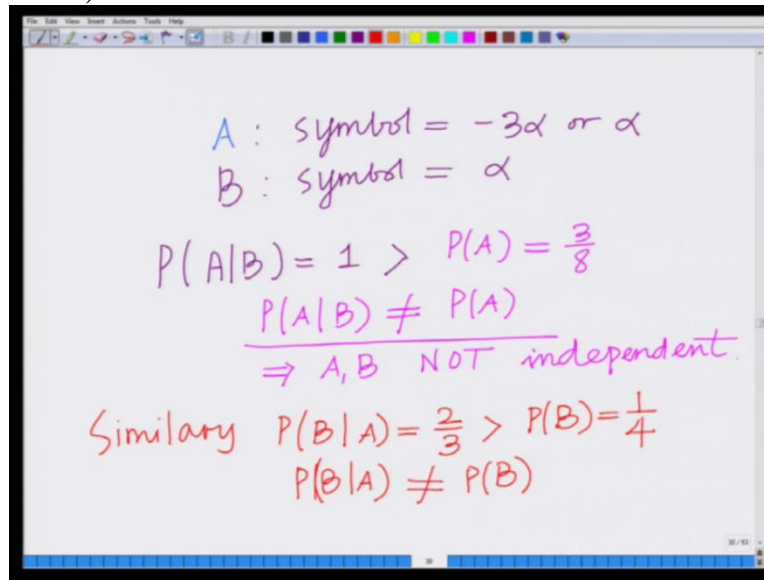 File Edit View Insert Actions Tools Help
A : symbol = -3α or α
B : symbol = α
P(A|B) = 1 > P(A) = 3/8
P(A|B) ≠ P(A)
⇒ A, B NOT independent.
Similary P(B|A) = 2/3 > P(B) = 1/4
P(B|A) ≠ P(B)